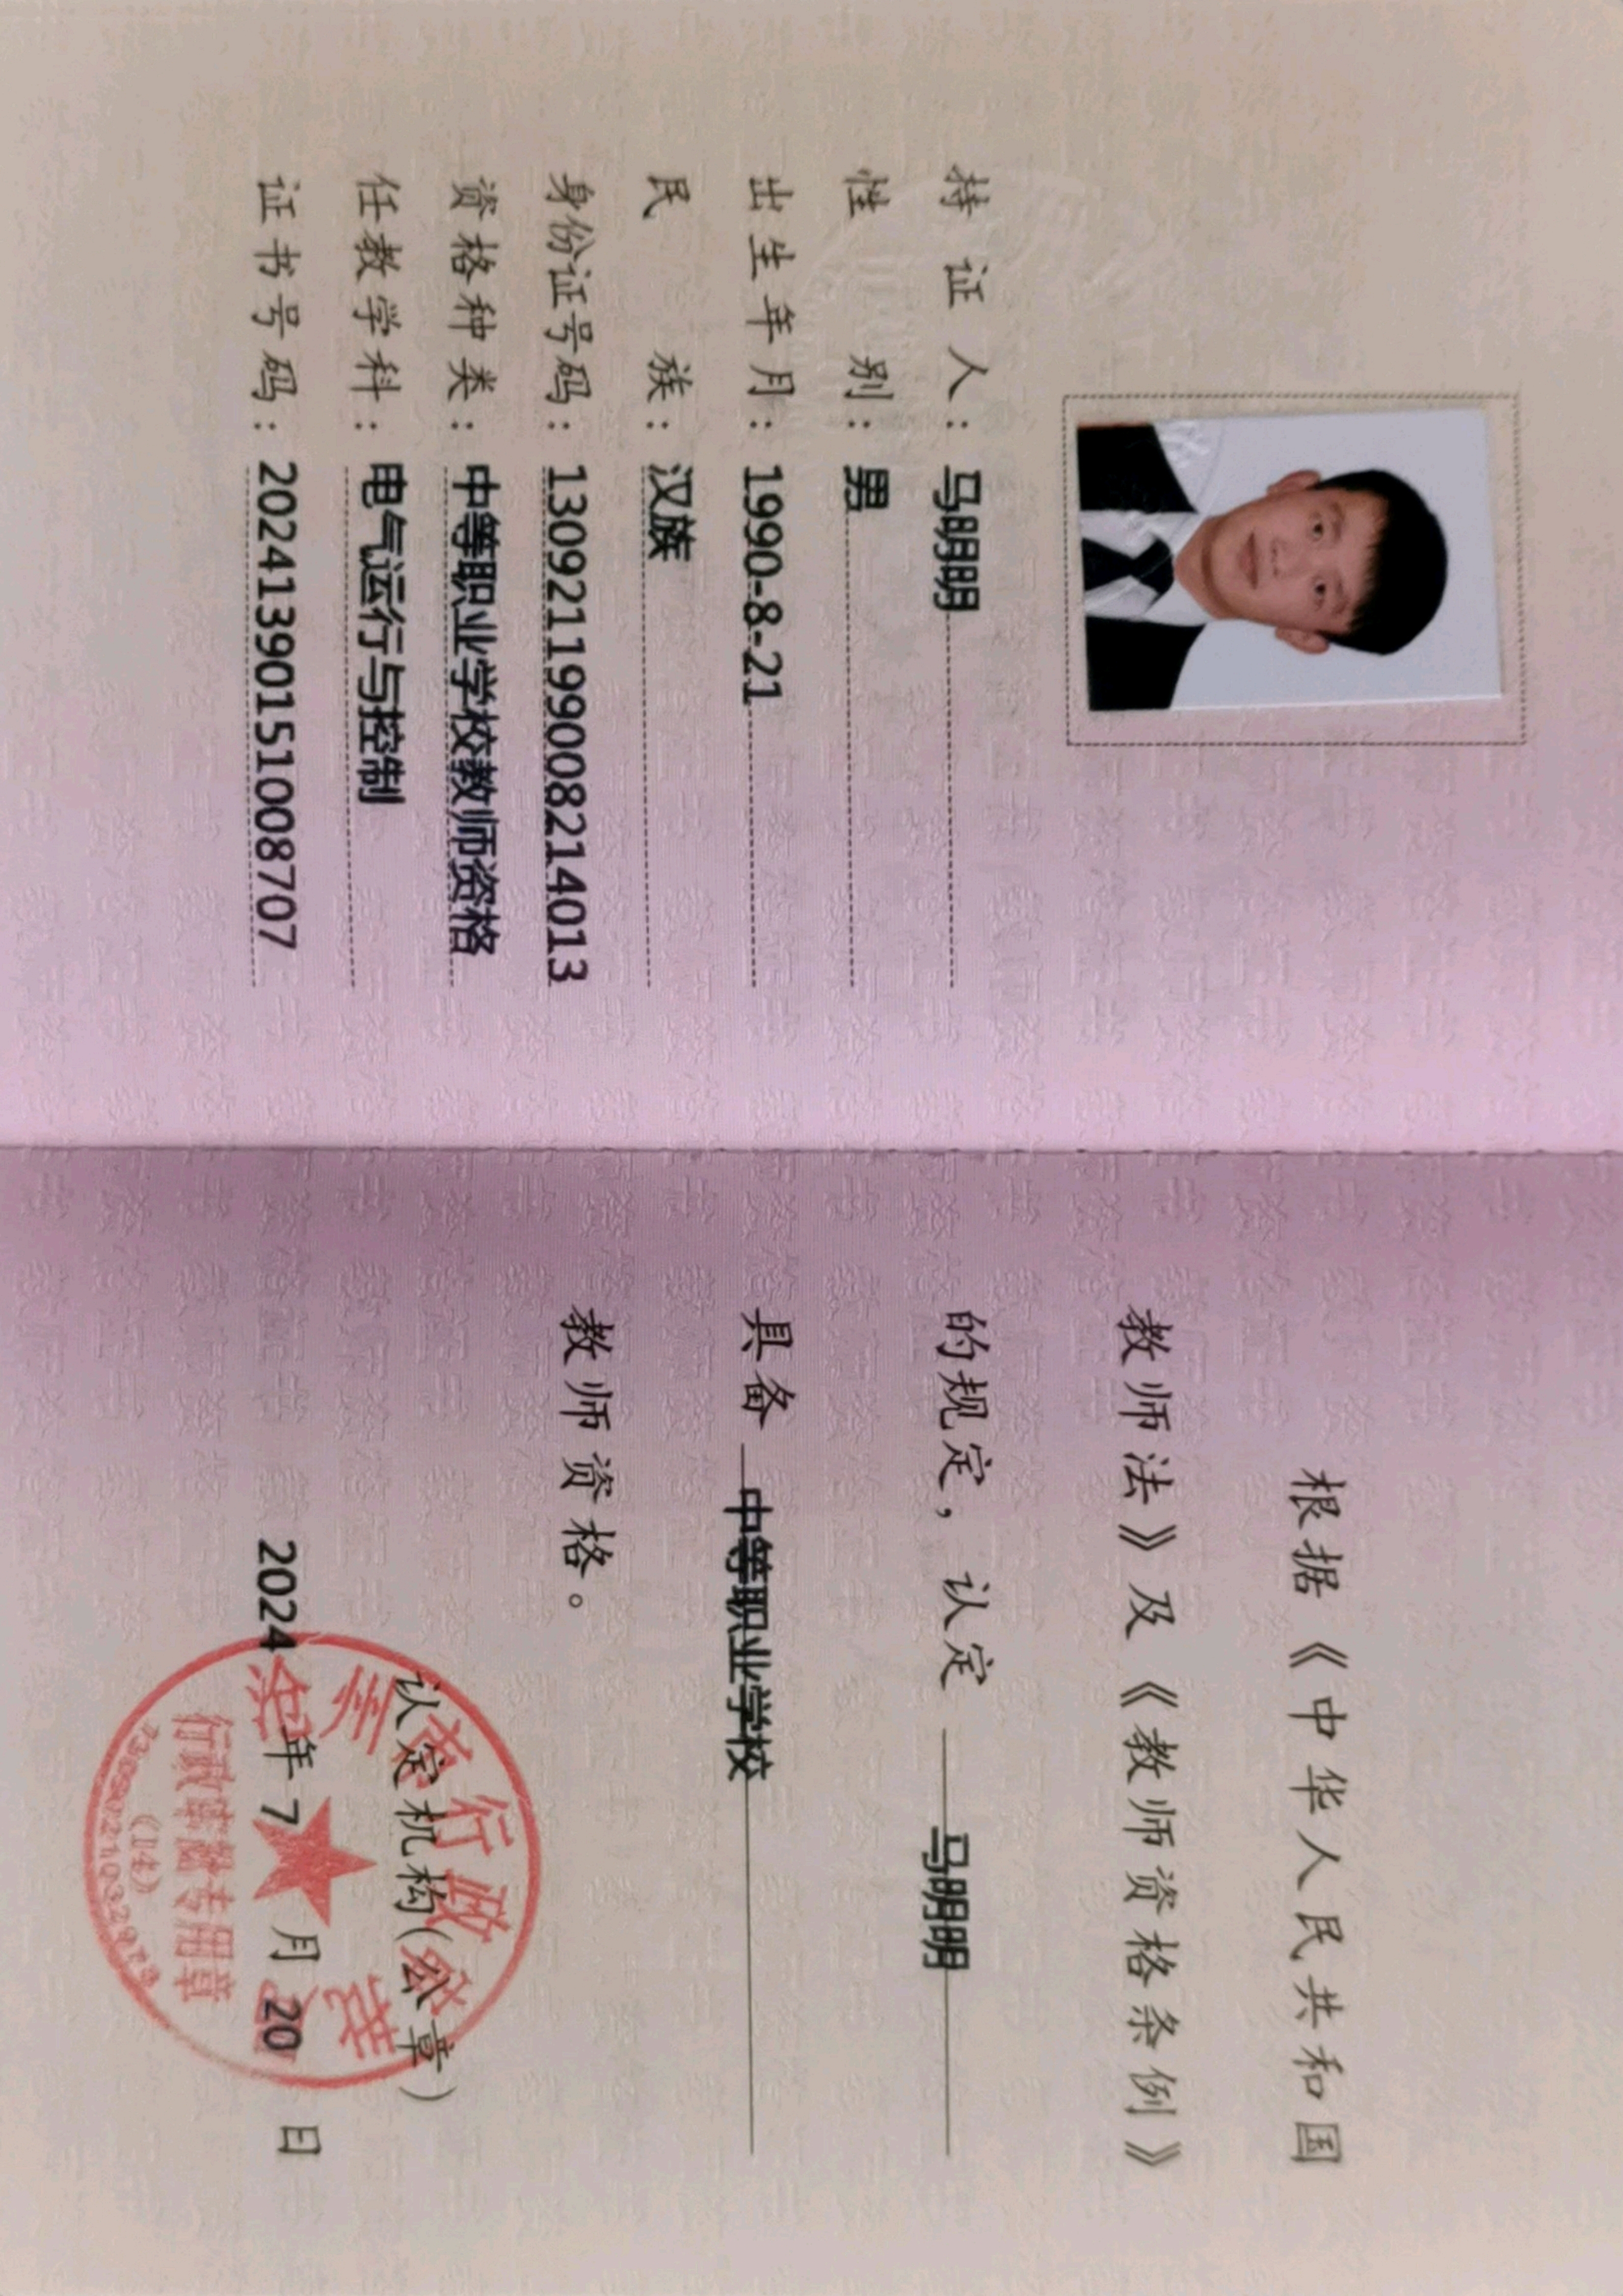 持证人：马明明
性别：男
出生年月：1990-8-21
民族：汉族
身份证号码：130921199008214013
资格种类：中等职业学校教师资格
任教学科：电气运行与控制
证书号码：20241390151008707
根据《中华人民共和国
教师法》及《教师资格条例》
的规定，认定 马明明
具备 中等职业学校
教师资格。
认定机构(公章)
2024年7月20日
行政审批专用章